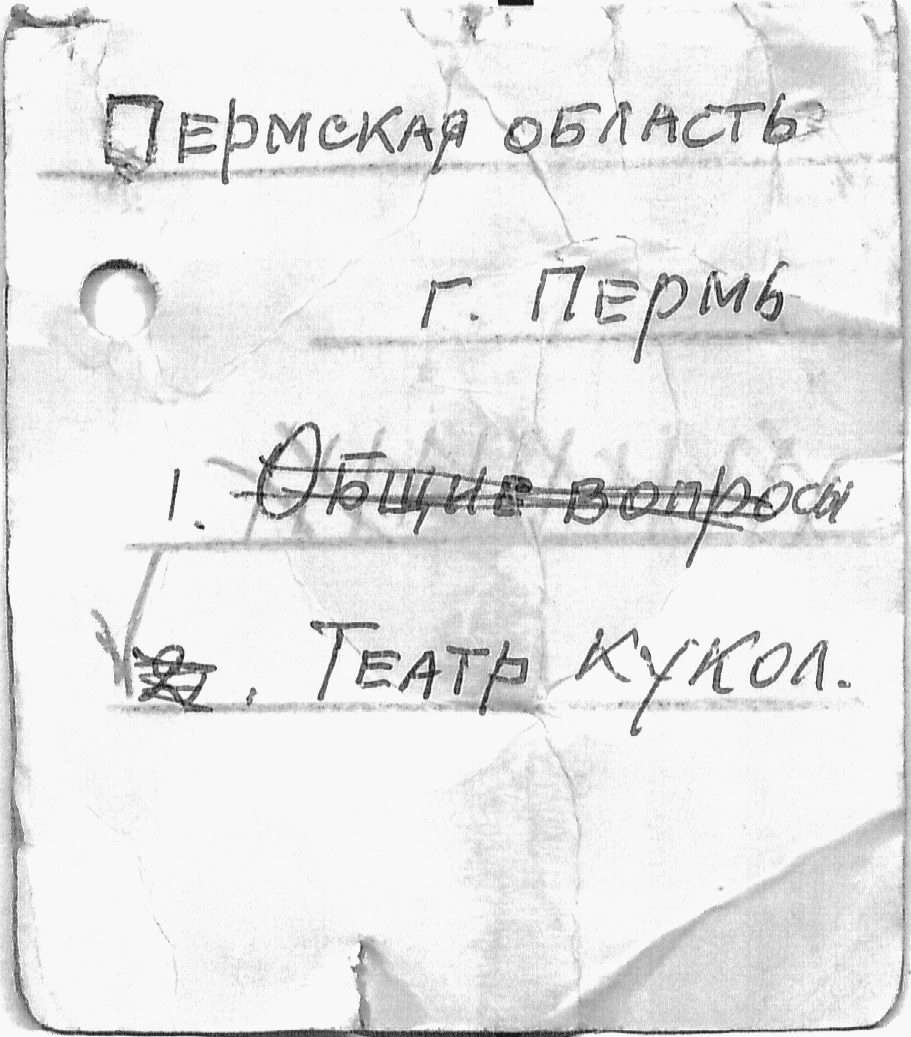 Пермская область
г. Пермь
1. Общие вопросы
. Театр кукол.